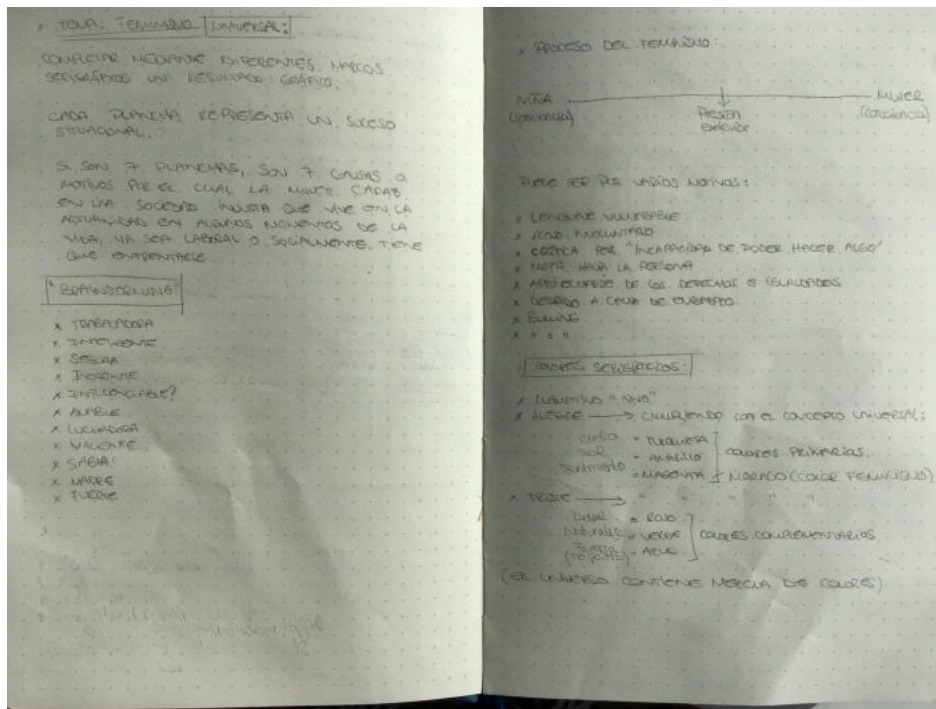 TEMA: FEMINISMO UNIVERSAL:
COMPLETAR MEDIANTE DIFERENTES MARCOS
SERIGRÁFICOS UN RESULTADO GRÁFICO.
CADA PLANCHA REPRESENTA UN SUCESO
SITUACIONAL.
SI SON 7 PLANCHAS, SON 7 CAUSAS O
MOTIVOS POR EL CUAL LA MUJER CAPAZ
EN UNA SOCIEDAD INJUSTA QUE VIVE EN LA
ACTUALIDAD EN ALGUNOS MOMENTOS DE LA
VIDA, YA SEA LABORAL O SOCIALMENTE, TIENE
QUE ENFRENTARSE.
"BRAINSORMING"
x TRABAJADORA
x INTELIGENTE
x SEGURA
x INOCENTE
x INFLUENCIABLE?
x AMABLE
x LUCHADORA
x VALIENTE
x SABIA
x MADRE
x FUERTE
x PROCESO DEL FEMINISMO:
NIÑA MUJER
(inocencia) Presión (conciencia)
exterior
PUEDE SER POR VARIOS MOTIVOS:
x LENGUAJE VULNERABLE
x ACOSO INVOLUNTARIO
x CRÍTICA POR "INCAPACIDAD DE PODER HACER ALGO"
x MOFA HACIA LA PERSONA
x APROVECHARSE DE LOS DERECHOS E IGUALDADES
x DESPIDO A CAUSA DE EMBARAZO
x BULLING
x o o o
COLORES SERIGRÁFICOS:
x LLAMATIVO
x ALEGRE → CUMPLIENDO CON EL CONCEPTO UNIVERSAL:
cielo = TURQUESA
sol = AMARILLO COLORES PRIMARIOS.
= MAGENTA + MORADO (COLOR FEMINISMO)
x TRISTE → " " " " "
= ROJO
naturaleza = VERDE COLORES COMPLEMENTARIOS
= AZUL
(EL UNIVERSO CONTIENE MEZCLA DE COLORES)